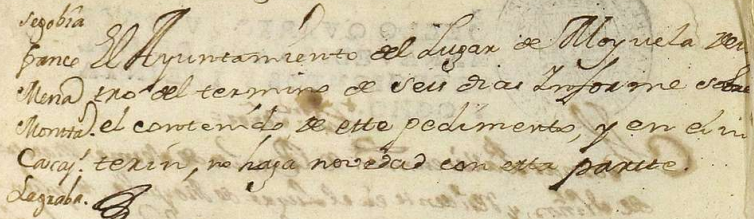 Segobia
ponce
Mena
Montta.
Caraj.
Lagraba.
El Ayuntamiento del Lugar de Moyuela den
tro del termino de seis dias Informe sobre
el contenido de este pedimento, y en el in
terin, no haga novedad con esta partte.